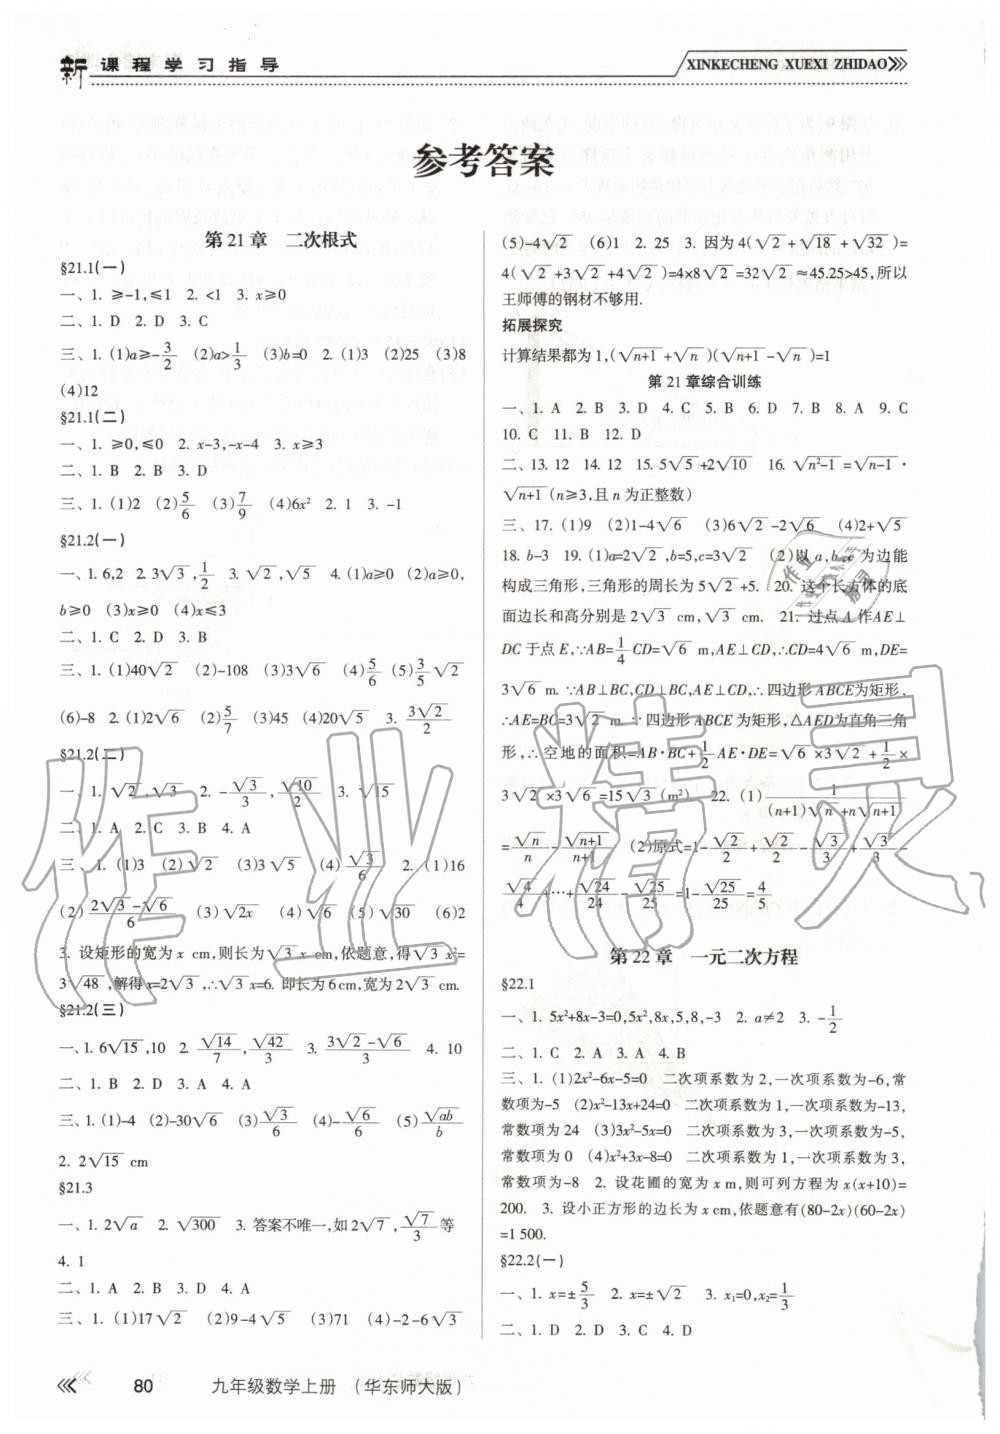 新课程学习指导
XINKECHENG XUEXI ZHIDAO
参考答案
第21章 二次根式
§21.1(一)
一、1. ≥-1,≤1 2. <1 3. x≥0
二、1. D 2. D 3. C
三、1. (1)a≥-3/2 (2)a>1/3 (3)b=0 2. (1)3 (2)25 (3)8
(4)12
§21.1(二)
一、1. ≥0,≤0 2. x-3,-x-4 3. x≥3
二、1. B 2. B 3. D
三、1. (1)2 (2)5/6 (3)7/9 (4)6x² 2. 1 3. -1
§21.2(一)
一、1. 6,2 2. 3√3,1/2 3. √2,√5 4. (1)a≥0 (2)a≥0,
b≥0 (3)x≥0 (4)x≤3
二、1. C 2. D 3. B
三、1. (1)40√2 (2)-108 (3)3√6 (4)5/6 (5)3/5√2
(6)-8 2. (1)2√6 (2)5/7 (3)45 (4)20√5 3. 3√2/2
§21.2(二)
一、1. √2,√3 2. -√3/3,√10/2 3. √15
二、1. A 2. C 3. B 4. A
三、1. (1)3 (2)√2 (3)3√5 (4)√3/6 2. (1)16
(2)(2√3-√6)/6 (3)√2x (4)√6 (5)√30 (6)2
3. 设矩形的宽为x cm,则长为√3x cm,依题意,得√3x²=
3√48,解得x=2√3,∴√3x=6. 即长为6cm,宽为2√3 cm.
§21.2(三)
一、1. 6√15,10 2. √14/7,√42/3 3. (3√2-√6)/3 4. 10
二、1. B 2. D 3. A 4. A
三、1. (1)-4 (2)-30√6 (3)√3/6 (4)-√6/6 (5)√ab/b
2. 2√15 cm
§21.3
一、1. 2√a 2. √300 3. 答案不唯一,如2√7,√7/3等
4. 1
二、1. A 2. B 3. D 4. A
三、1. (1)17√2 (2)9-4√5 (3)71 (4)-2-6√3
(5)-4√2 (6)1 2. 25 3. 因为4(√2+√18+√32)=
4(√2+3√2+4√2)=4×8√2=32√2≈45.25>45,所以
王师傅的钢材不够用.
拓展探究
计算结果都为1,(√n+1+√n)(√n+1-√n)=1
第21章综合训练
一、1. A 2. B 3. D 4. C 5. B 6. D 7. B 8. A 9. C
10. C 11. B 12. D
二、13. 12 14. 12 15. 5√5+2√10 16. √n²-1=√n-1·
√n+1(n≥3,且n为正整数)
三、17. (1)9 (2)1-4√6 (3)6√2-2√6 (4)2+√5
18. b-3 19. (1)a=2√2,b=5,c=3√2 (2)以a,b,c为边能
构成三角形,三角形的周长为5√2+5. 20. 这个长方体的底
面边长和高分别是2√3 cm,√3 cm. 21. 过点A作AE⊥
DC于点E,∵AB=1/4CD=√6 m,AE⊥CD,∴CD=4√6 m,DE=
3√6 m. ∵AB⊥BC,CD⊥BC,AE⊥CD,∴四边形ABCE为矩形,
∴AE=BC=3√2 m. ∵四边形ABCE为矩形,△AED为直角三角
形,∴空地的面积=AB·BC+1/2AE·DE=√6×3√2+1/2×
3√2×3√6=15√3(m²) 22. (1)1/((n+1)√n+n√n+1)=
√n/n-√n+1/n+1 (2)原式=1-√2/2+√2/2-√3/3+√3/3-
√4/4+…+√24/24-√25/25=1-√25/25=4/5
第22章 一元二次方程
§22.1
一、1. 5x²+8x-3=0,5x²,8x,5,8,-3 2. a≠2 3. -1/2
二、1. C 2. A 3. A 4. B
三、1. (1)2x²-6x-5=0 二次项系数为2,一次项系数为-6,常
数项为-5 (2)x²-13x+24=0 二次项系数为1,一次项系数为-13,
常数项为24 (3)3x²-5x=0 二次项系数为3,一次项系数为-5,
常数项为0 (4)x²+3x-8=0 二次项系数为1,一次项系数为3,
常数项为-8 2. 设花圃的宽为x m,则可列方程为x(x+10)=
200. 3. 设小正方形的边长为x cm,依题意有(80-2x)(60-2x)
=1 500.
§22.2(一)
一、1. x=±5/3 2. x=±√2 3. x₁=0,x₂=1/3
二、1. D 2. D 3. C 4. D
80 九年级数学上册 (华东师大版)
作业精灵